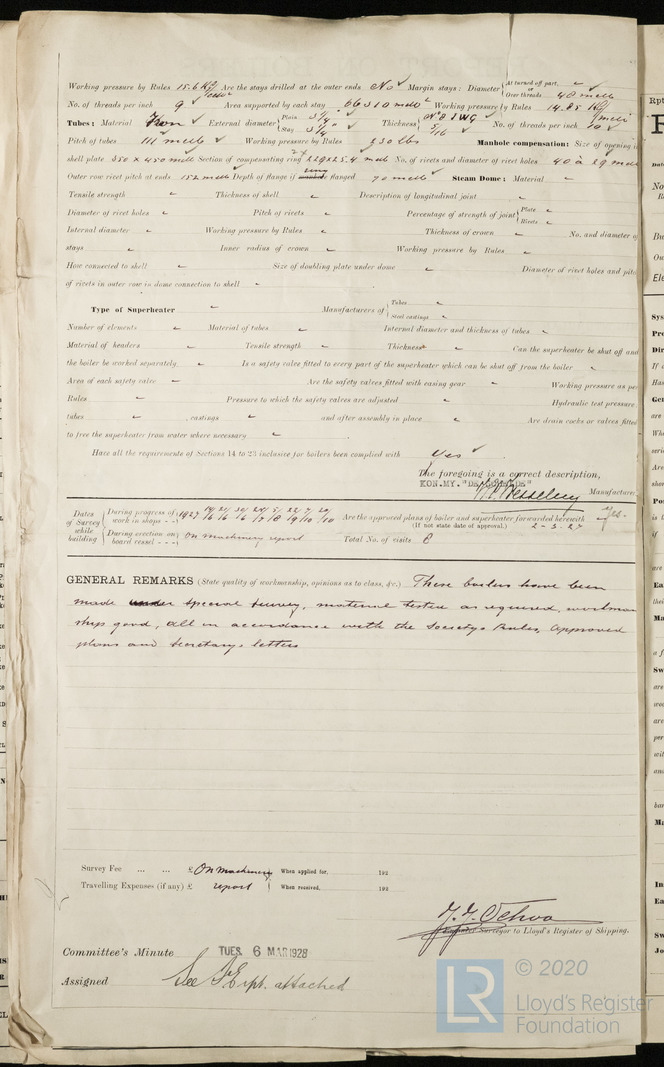 Working pressure by Rules 15.6 Kg Are the stays drilled at the outer ends No Margin stays: Diameter At turned off part, or Over threads 40 m
No. of threads per inch 9 Area supported by each stay 66310 Working pressure by Rules 14.85 Kg
Tubes: Material Iron External diameter Plain 3 1/4" Stay 3 1/4" Thickness No 8 IWG 5/16 No. of threads per inch 10
Pitch of tubes 111 Working pressure by Rules 230 lbs Manhole compensation: Size of opening in
shell plate 350 x 450 Section of compensating ring 229 x 25.4 No. of rivets and diameter of rivet holes 40 à 29
Outer row rivet pitch at ends 152 Depth of flange if flanged 70 Steam Dome: Material
Tensile strength Thickness of shell Description of longitudinal joint
Diameter of rivet holes Pitch of rivets Percentage of strength of joint Plate Rivets
Internal diameter Working pressure by Rules Thickness of crown No. and diameter of
stays Inner radius of crown Working pressure by Rules
How connected to shell Size of doubling plate under dome Diameter of rivet holes and pitch
of rivets in outer row in dome connection to shell
Type of Superheater Manufacturers of Tubes Steel castings
Number of elements Material of tubes Internal diameter and thickness of tubes
Material of headers Tensile strength Thickness Can the superheater be shut off and
the boiler be worked separately Is a safety valve fitted to every part of the superheater which can be shut off from the boiler
Area of each safety valve Are the safety valves fitted with easing gear Working pressure as per
Rules Pressure to which the safety valves are adjusted Hydraulic test pressure
tubes , castings and after assembly in place Are drain cocks or valves fitted
to free the superheater from water where necessary
Have all the requirements of Sections 14 to 23 inclusive for boilers been complied with Yes
The foregoing is a correct description,
KON.MY. "DE SCHELDE"
Manufacturer
Dates of Survey while building During progress of work in shops - - 1927 During erection on board vessel - - - On machinery report
Are the approved plans of boiler and superheater forwarded herewith Yes
(If not state date of approval.) 2-3-27
Total No. of visits 8
GENERAL REMARKS (State quality of workmanship, opinions as to class, &c.) These boilers have been
made under special survey, material tested as required, workman
ship good, all in accordance with the Society's Rules, approved
plans and Secretary's letters
Survey Fee ... ... £ On machinery When applied for, 192
Travelling Expenses (if any) £ report When received, 192
Surveyor to Lloyd's Register of Shipping.
Committee's Minute TUES. 6 MAR 1928
Assigned See rpt. attached
LR © 2020
Lloyd's Register
Foundation